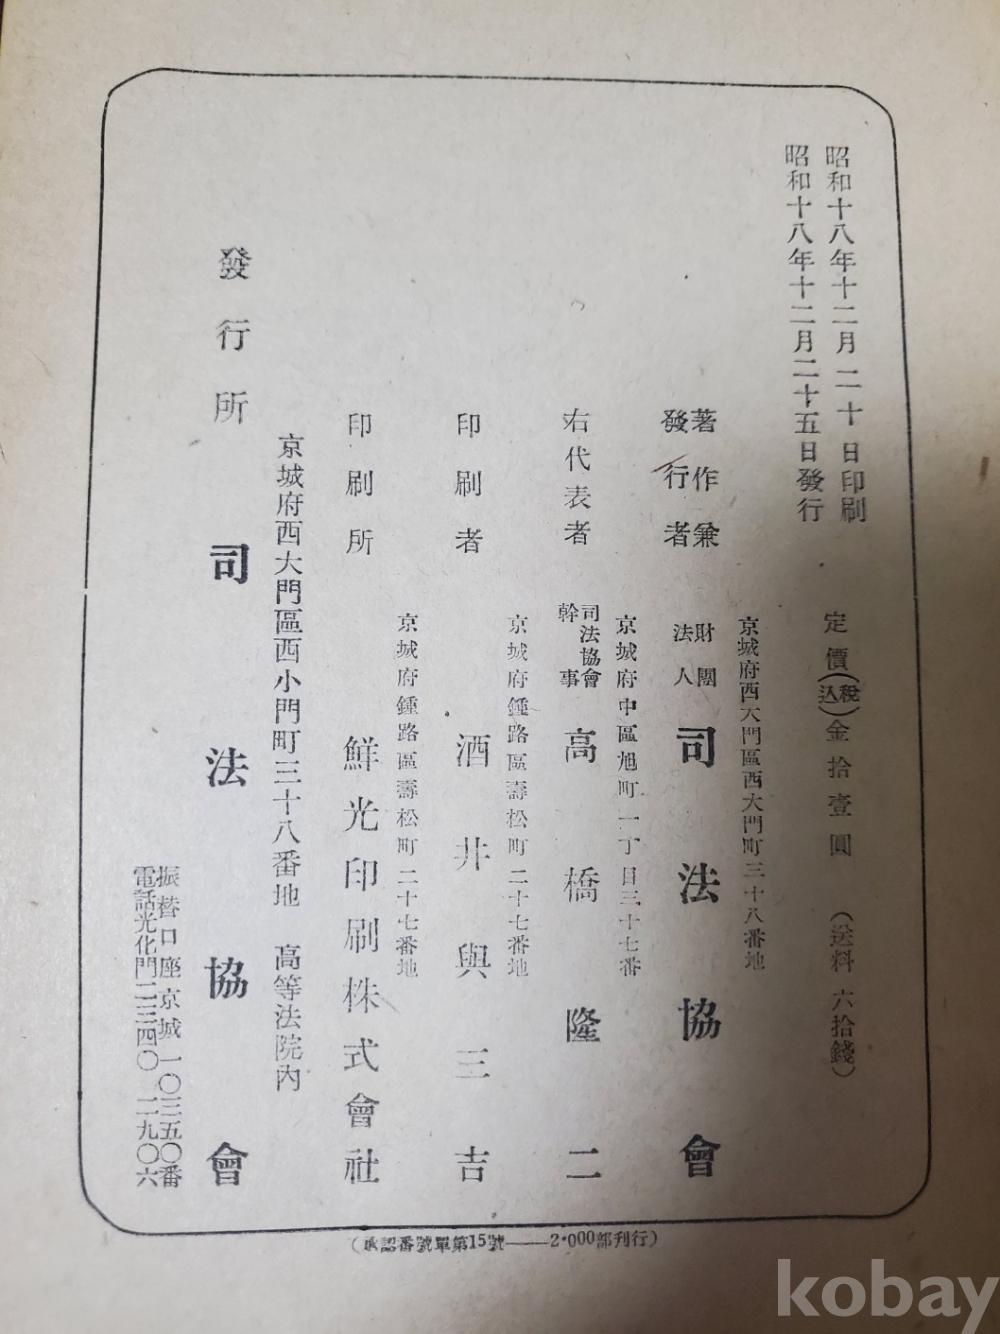 昭和十八年十二月二十日印刷
昭和十八年十二月二十五日發行
定價(税込)金拾壹圓 (送料 六拾錢)
京城府西大門區西大門町三十八番地
著作兼發行者 財團法人 司法協會
京城府中區旭町一丁目三十七番
右代表者 司法協會幹事 高橋隆二
京城府鍾路區壽松町二十七番地
印刷者 酒井與三吉
京城府鍾路區壽松町二十七番地
印刷所 鮮光印刷株式會社
京城府西大門區西小門町三十八番地 高等法院內
發行所 司法協會
振替口座京城一〇三五〇番
電話光化門二三四〇・二九〇六
(承認番號單第15號――2・000部刊行)
kobay